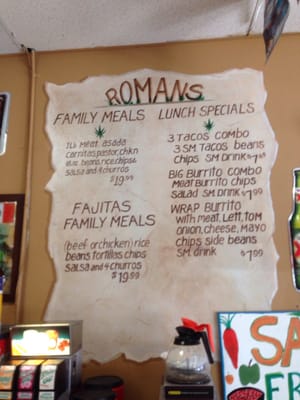 ROMANS
FAMILY MEALS
1Lb MEAT. asada
carnitas, pastor, chkn
rice, beans, rice, chips &
salsa and 4 churros
$19.99
FAJITAS
FAMILY MEALS
(beef or chicken) rice
beans tortillas, chips
salsa and 4 churros
$19.99
LUNCH SPECIALS
3 TACOS COMBO
3 SM TACOS beans
chips SM DRINK
BIG BURRITO COMBO
MEAT BURRITO chips
SALAD SM DRINK
WRAP BURRITO
with meat, Lett, tom
onion, cheese, MAYO
chips side beans
SM drink
$7.99
SA
FRE